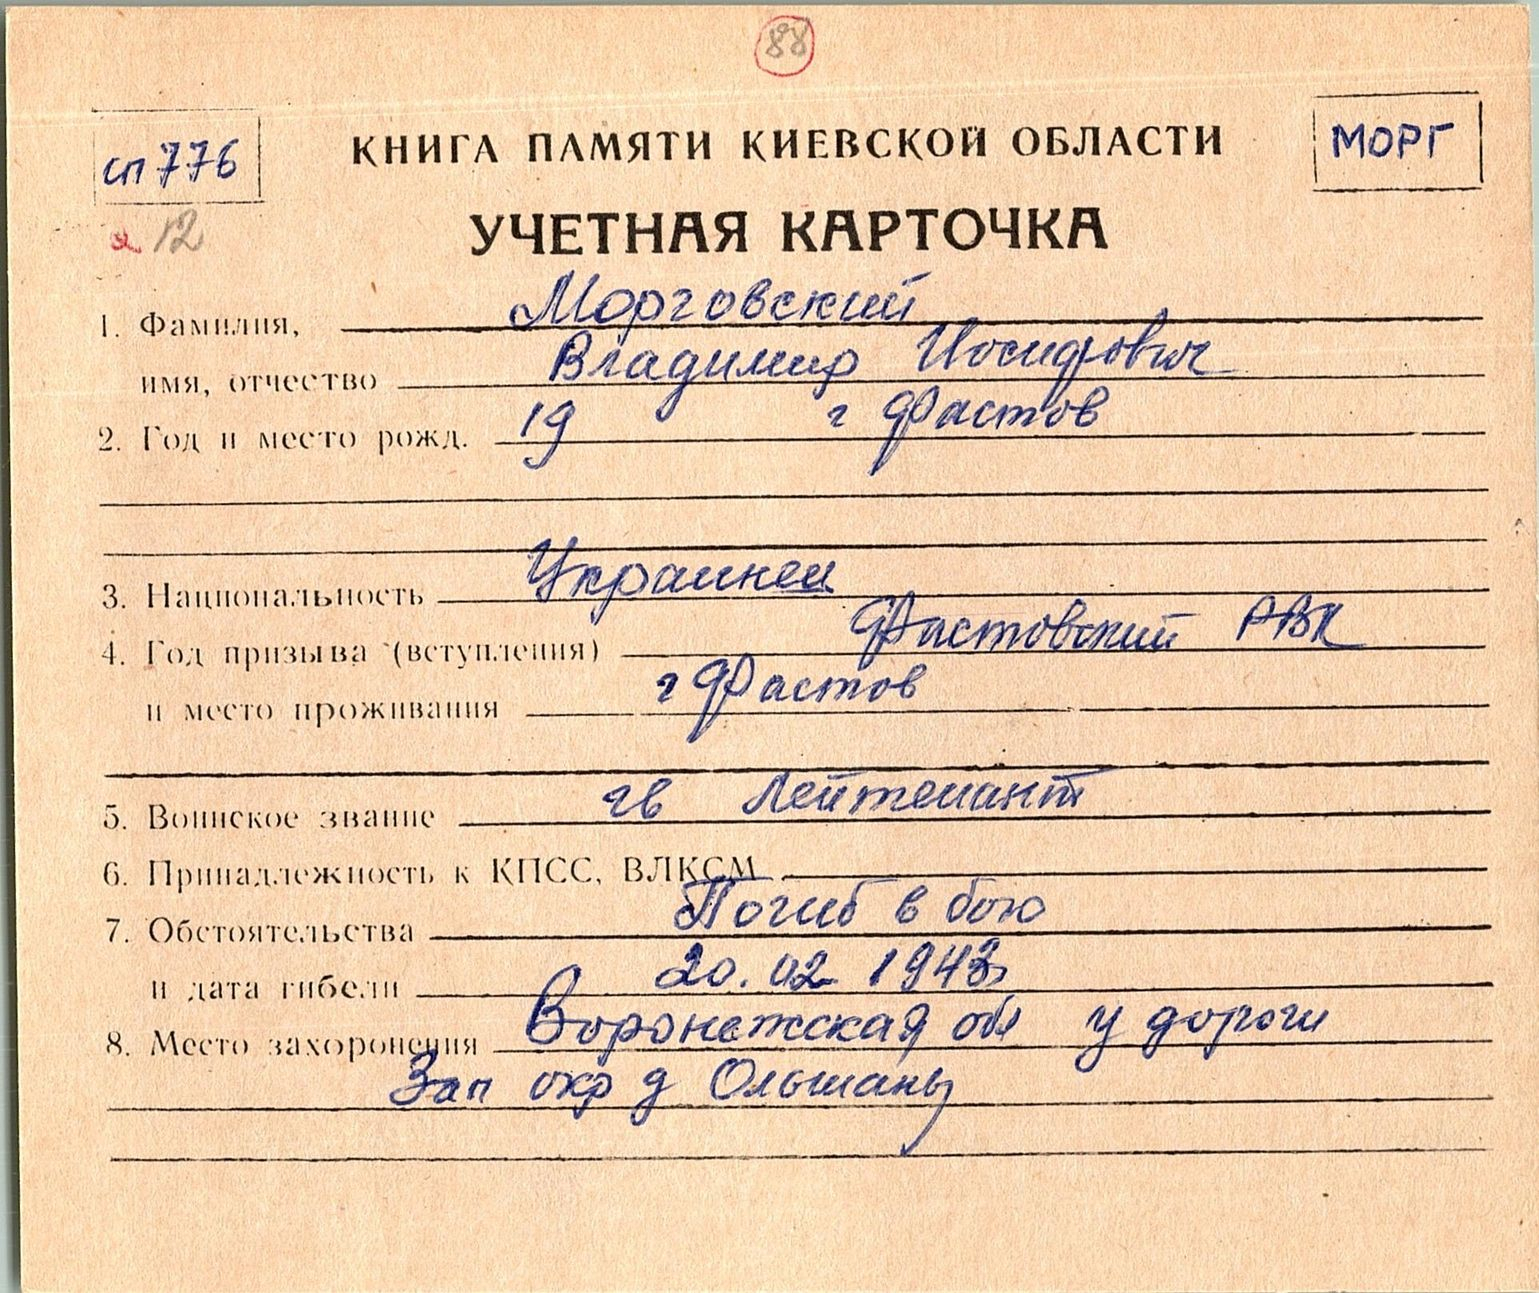 88
сп 776
КНИГА ПАМЯТИ КИЕВСКОЙ ОБЛАСТИ
МОРГ
12
УЧЕТНАЯ КАРТОЧКА
1. Фамилия, Морговский
имя, отчество Владимир Иосифович
2. Год и место рожд. 19 г Фастов
3. Национальность Украинец
4. Год призыва (вступления) Фастовский РВК
и место проживания г Фастов
5. Воинское звание гв Лейтенант
6. Принадлежность к КПСС, ВЛКСМ
7. Обстоятельства Погиб в бою
и дата гибели 20.02 1943
8. Место захоронения Воронежская обл у дороги
Зап окр д Ольшаны